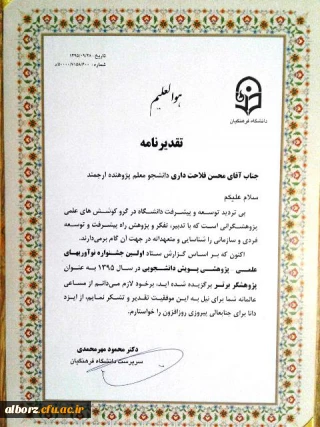 تاریخ: ۱۳۹۵/۰۹/۲۸
هوالعلیم
دانشگاه فرهنگیان
تقدیرنامه
جناب آقای محسن فلاحت داری دانشجو معلم پژوهنده ارجمند
سلام علیکم
بی تردید توسعه و پیشرفت دانشگاه در گرو کوشش های علمی
پژوهشگرانی است که با تدبیر، تفکر و پژوهش راه پیشرفت و توسعه
فردی و سازمانی را شناسایی و متعهدانه در جهت آن گام برمی‌دارند.
اکنون که بر اساس گزارش ستاد اولین جشنواره نوآوریهای
علمی پژوهشی پویش دانشجویی در سال ۱۳۹۵ به عنوان
پژوهشگر برتر برگزیده شده اید، برخود لازم می‌دانم از مساعی
عالمانه شما برای نیل به این موفقیت تقدیر و تشکر نمایم، از ایزد
دانا برای جنابعالی پیروزی روزافزون را خواستارم.
دکتر محمود مهرمحمدی
سرپرست دانشگاه فرهنگیان
alborz.cfu.ac.ir